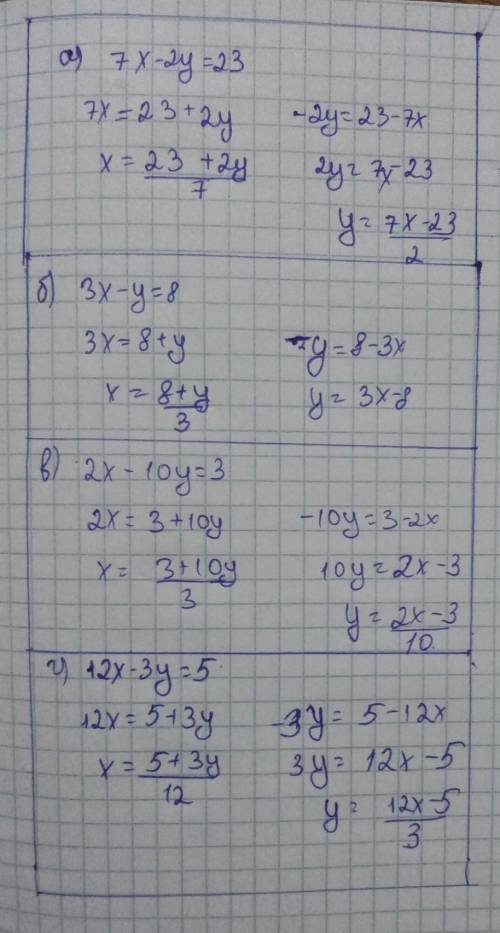 а) 7x-2y=23
7x=23+2y
x = 23+2y/7
-2y=23-7x
2y=7x-23
y = 7x-23/2
б) 3x-y=8
3x=8+y
x = 8+y/3
-y=8-3x
y=3x-8
в) 2x-10y=3
2x=3+10y
x = 3+10y/3
-10y=3-2x
10y=2x-3
y = 2x-3/10
г) 12x-3y=5
12x=5+3y
x = 5+3y/12
-3y=5-12x
3y=12x-5
y = 12x-5/3